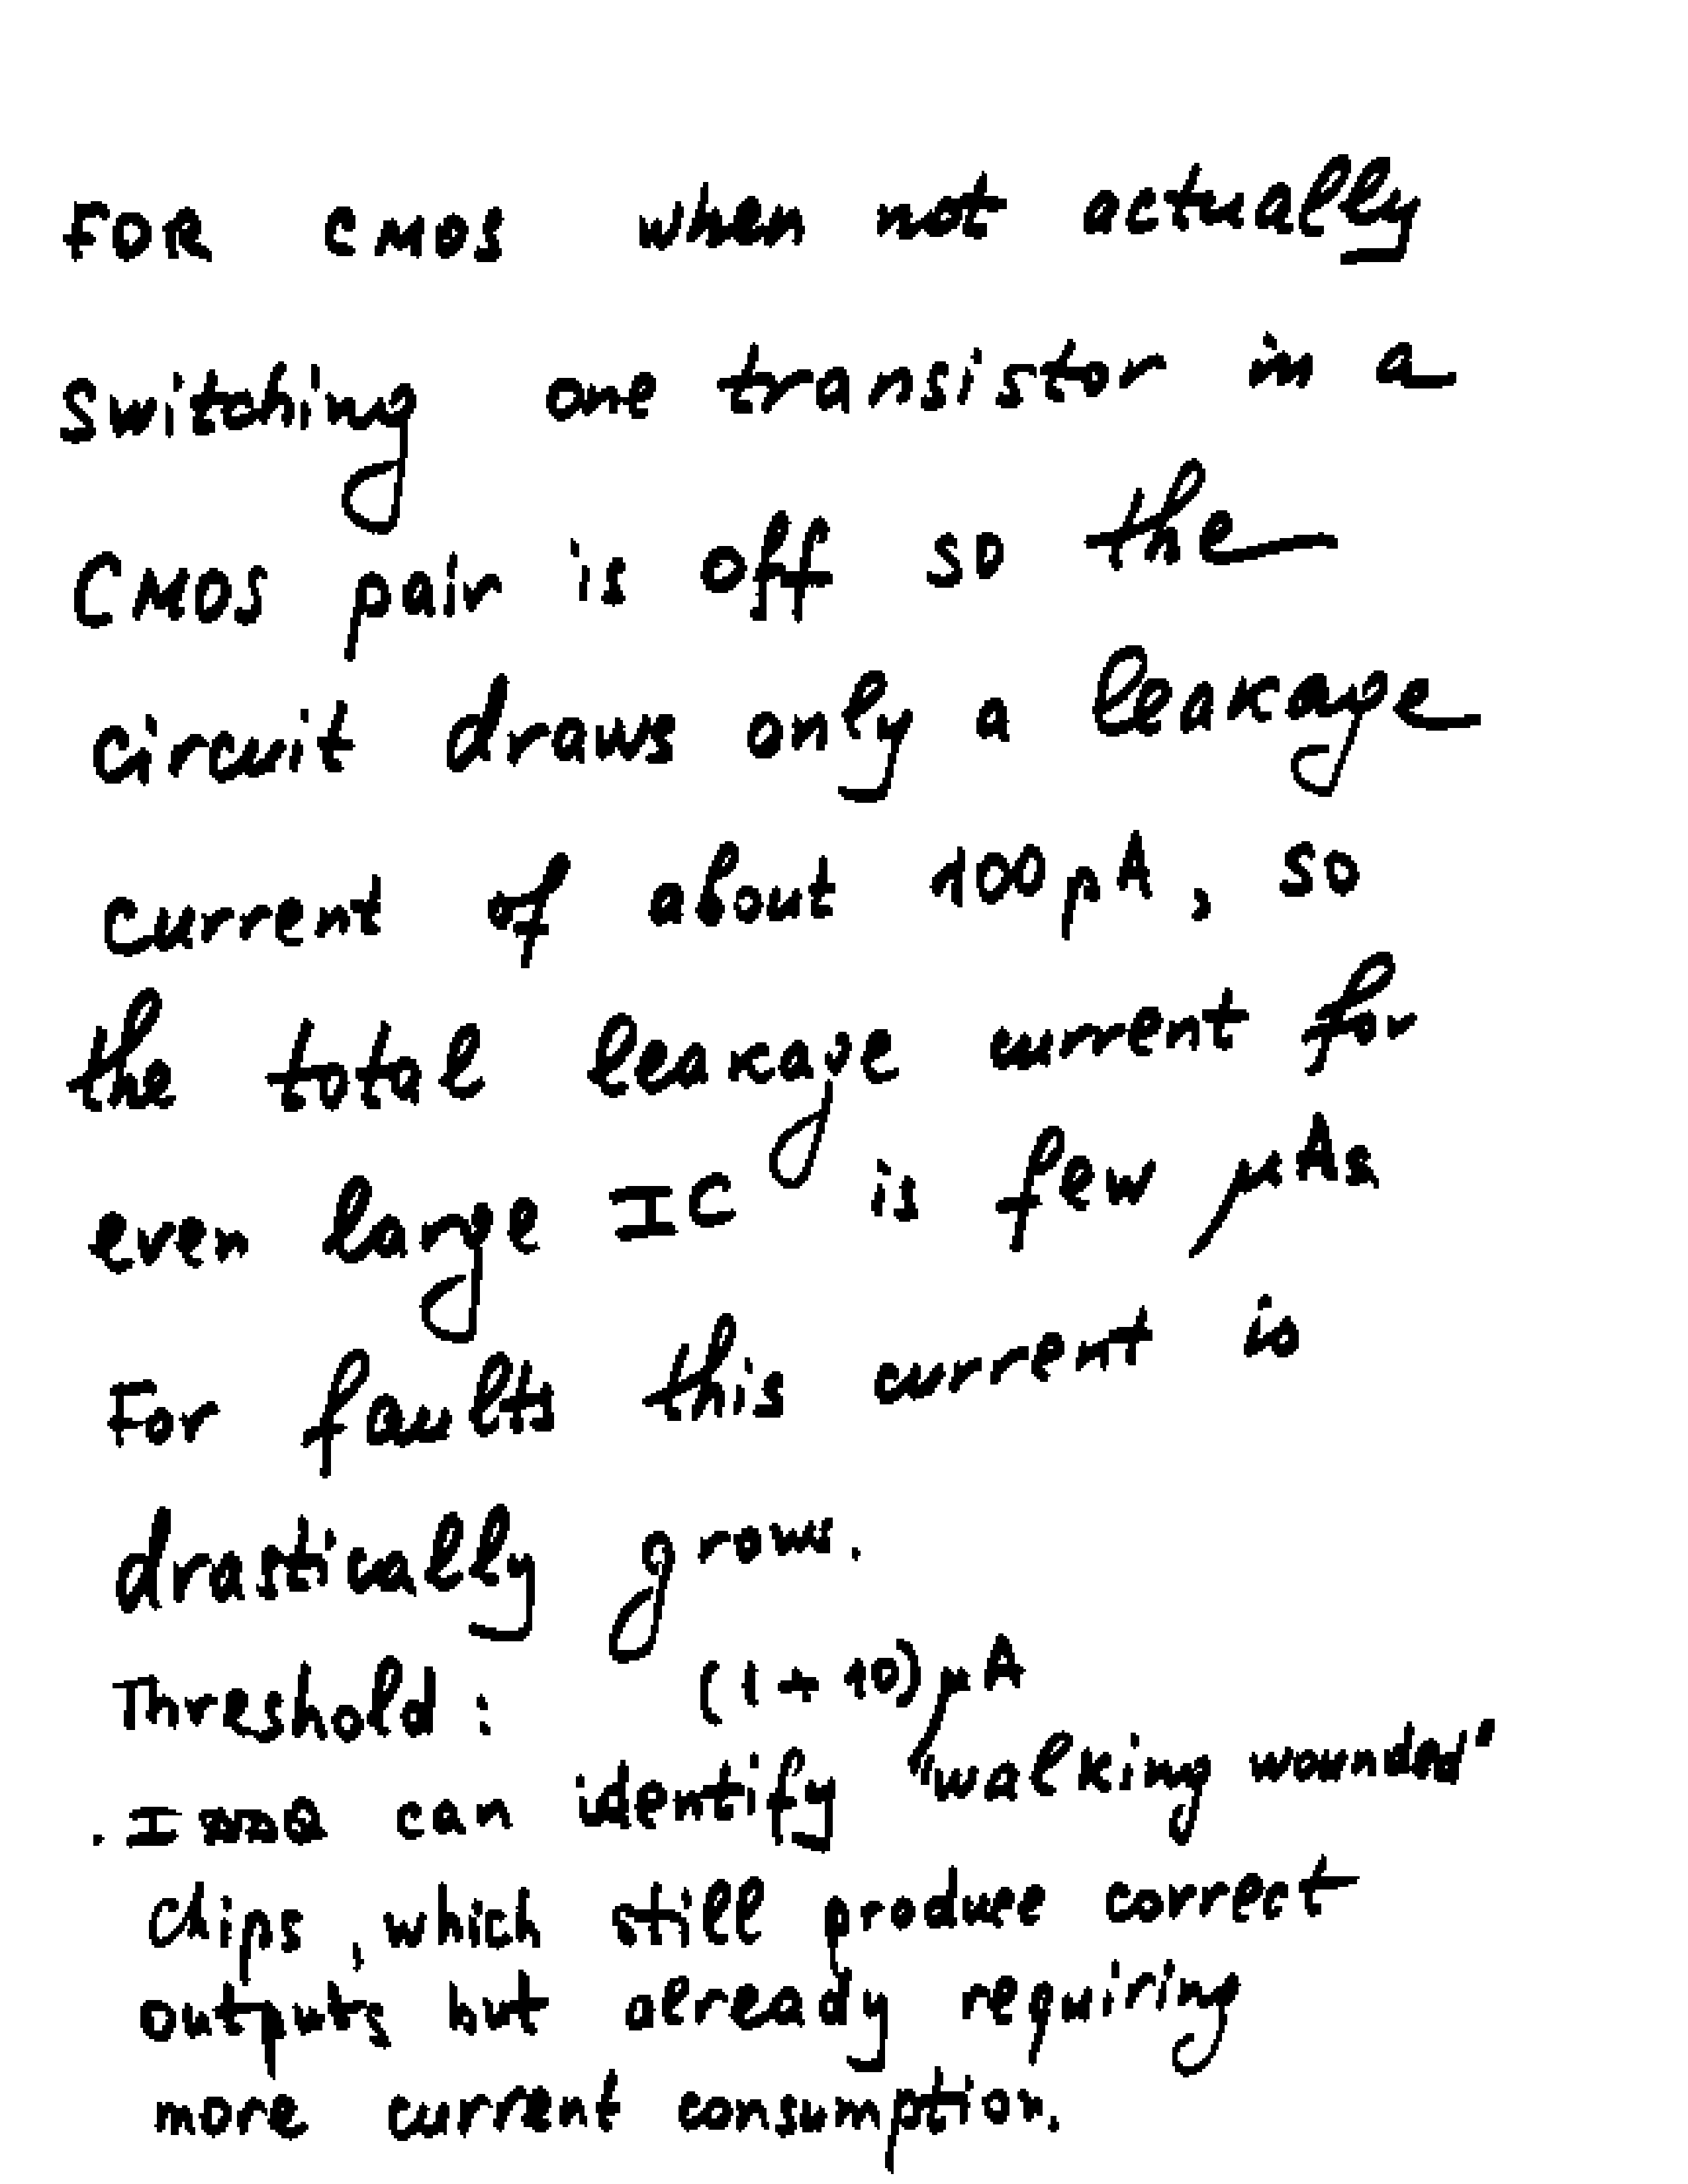 FOR CMOS when not actually
switching one transistor in a
CMOS pair is off so the
circuit draws only a leakage
current of about 100pA, so
the total leakage current for
even large IC is few μAs
For faults this current is
drastically grows.
Threshold: (1÷10)μA
. IDDQ can identify "walking wounded"
chips, which still produce correct
outputs but already requiring
more current consumption.